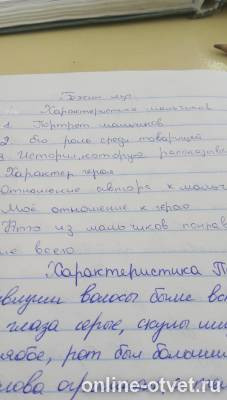 Бежин луг
Характеристика мальчиков
1. Портрет мальчиков
2. Его роль среди товарищей
3 История, которую рассказыва
Характер героя
Отношение автора к мальч
Моё отношение к герою
Кто из мальчиков понрав
всего
Характеристика П
волосы были вс
глаза серые, скулы ши
рот был большой
online-otvet.ru